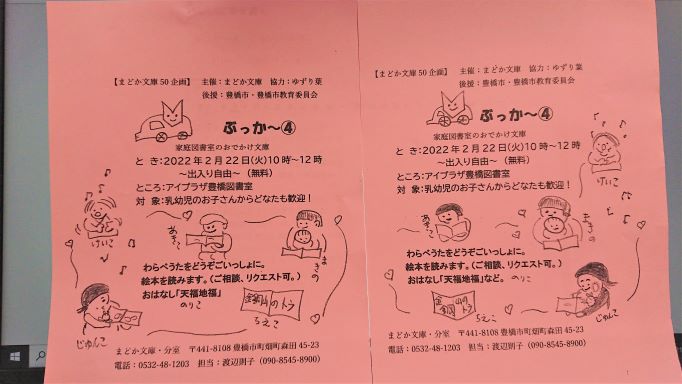 【まどか文庫50企画】 主催：まどか文庫 協力：ゆずり葉
後援：豊橋市・豊橋市教育委員会
ぶっか～④
家庭図書室のおでかけ文庫
と き：2022年2月22日(火)10時～12時
～出入り自由～ (無料)
ところ：アイプラザ豊橋図書室
対 象：乳幼児のお子さんからどなたも歓迎！
けいこ
あきこ
まきの
わらべうたをどうぞごいっしょに。
絵本を読みます。(ご相談、リクエスト可。)
おはなし「天福地福」
のりこ
金剛山のトラ
ちえこ
じゅんこ
まどか文庫・分室 〒441-8108 豊橋市町畑町森田45-23
電話：0532-48-1203 担当：渡辺則子(090-8545-8900)
【まどか文庫50企画】 主催：まどか文庫 協力：ゆずり葉
後援：豊橋市・豊橋市教育委員会
ぶっか～④
家庭図書室のおでかけ文庫
と き：2022年2月22日(火)10時～12時
～出入り自由～ (無料)
ところ：アイプラザ豊橋図書室
対 象：乳幼児のお子さんからどなたも歓迎！
けいこ
あきこ
まきの
わらべうたをどうぞごいっしょに。
絵本を読みます。(ご相談、リクエスト可。)
おはなし「天福地福」など。
のりこ
金剛山のトラ
ちえこ
じゅんこ
まどか文庫・分室 〒441-8108 豊橋市町畑町森田45-23
電話：0532-48-1203 担当：渡辺則子(090-8545-8900)